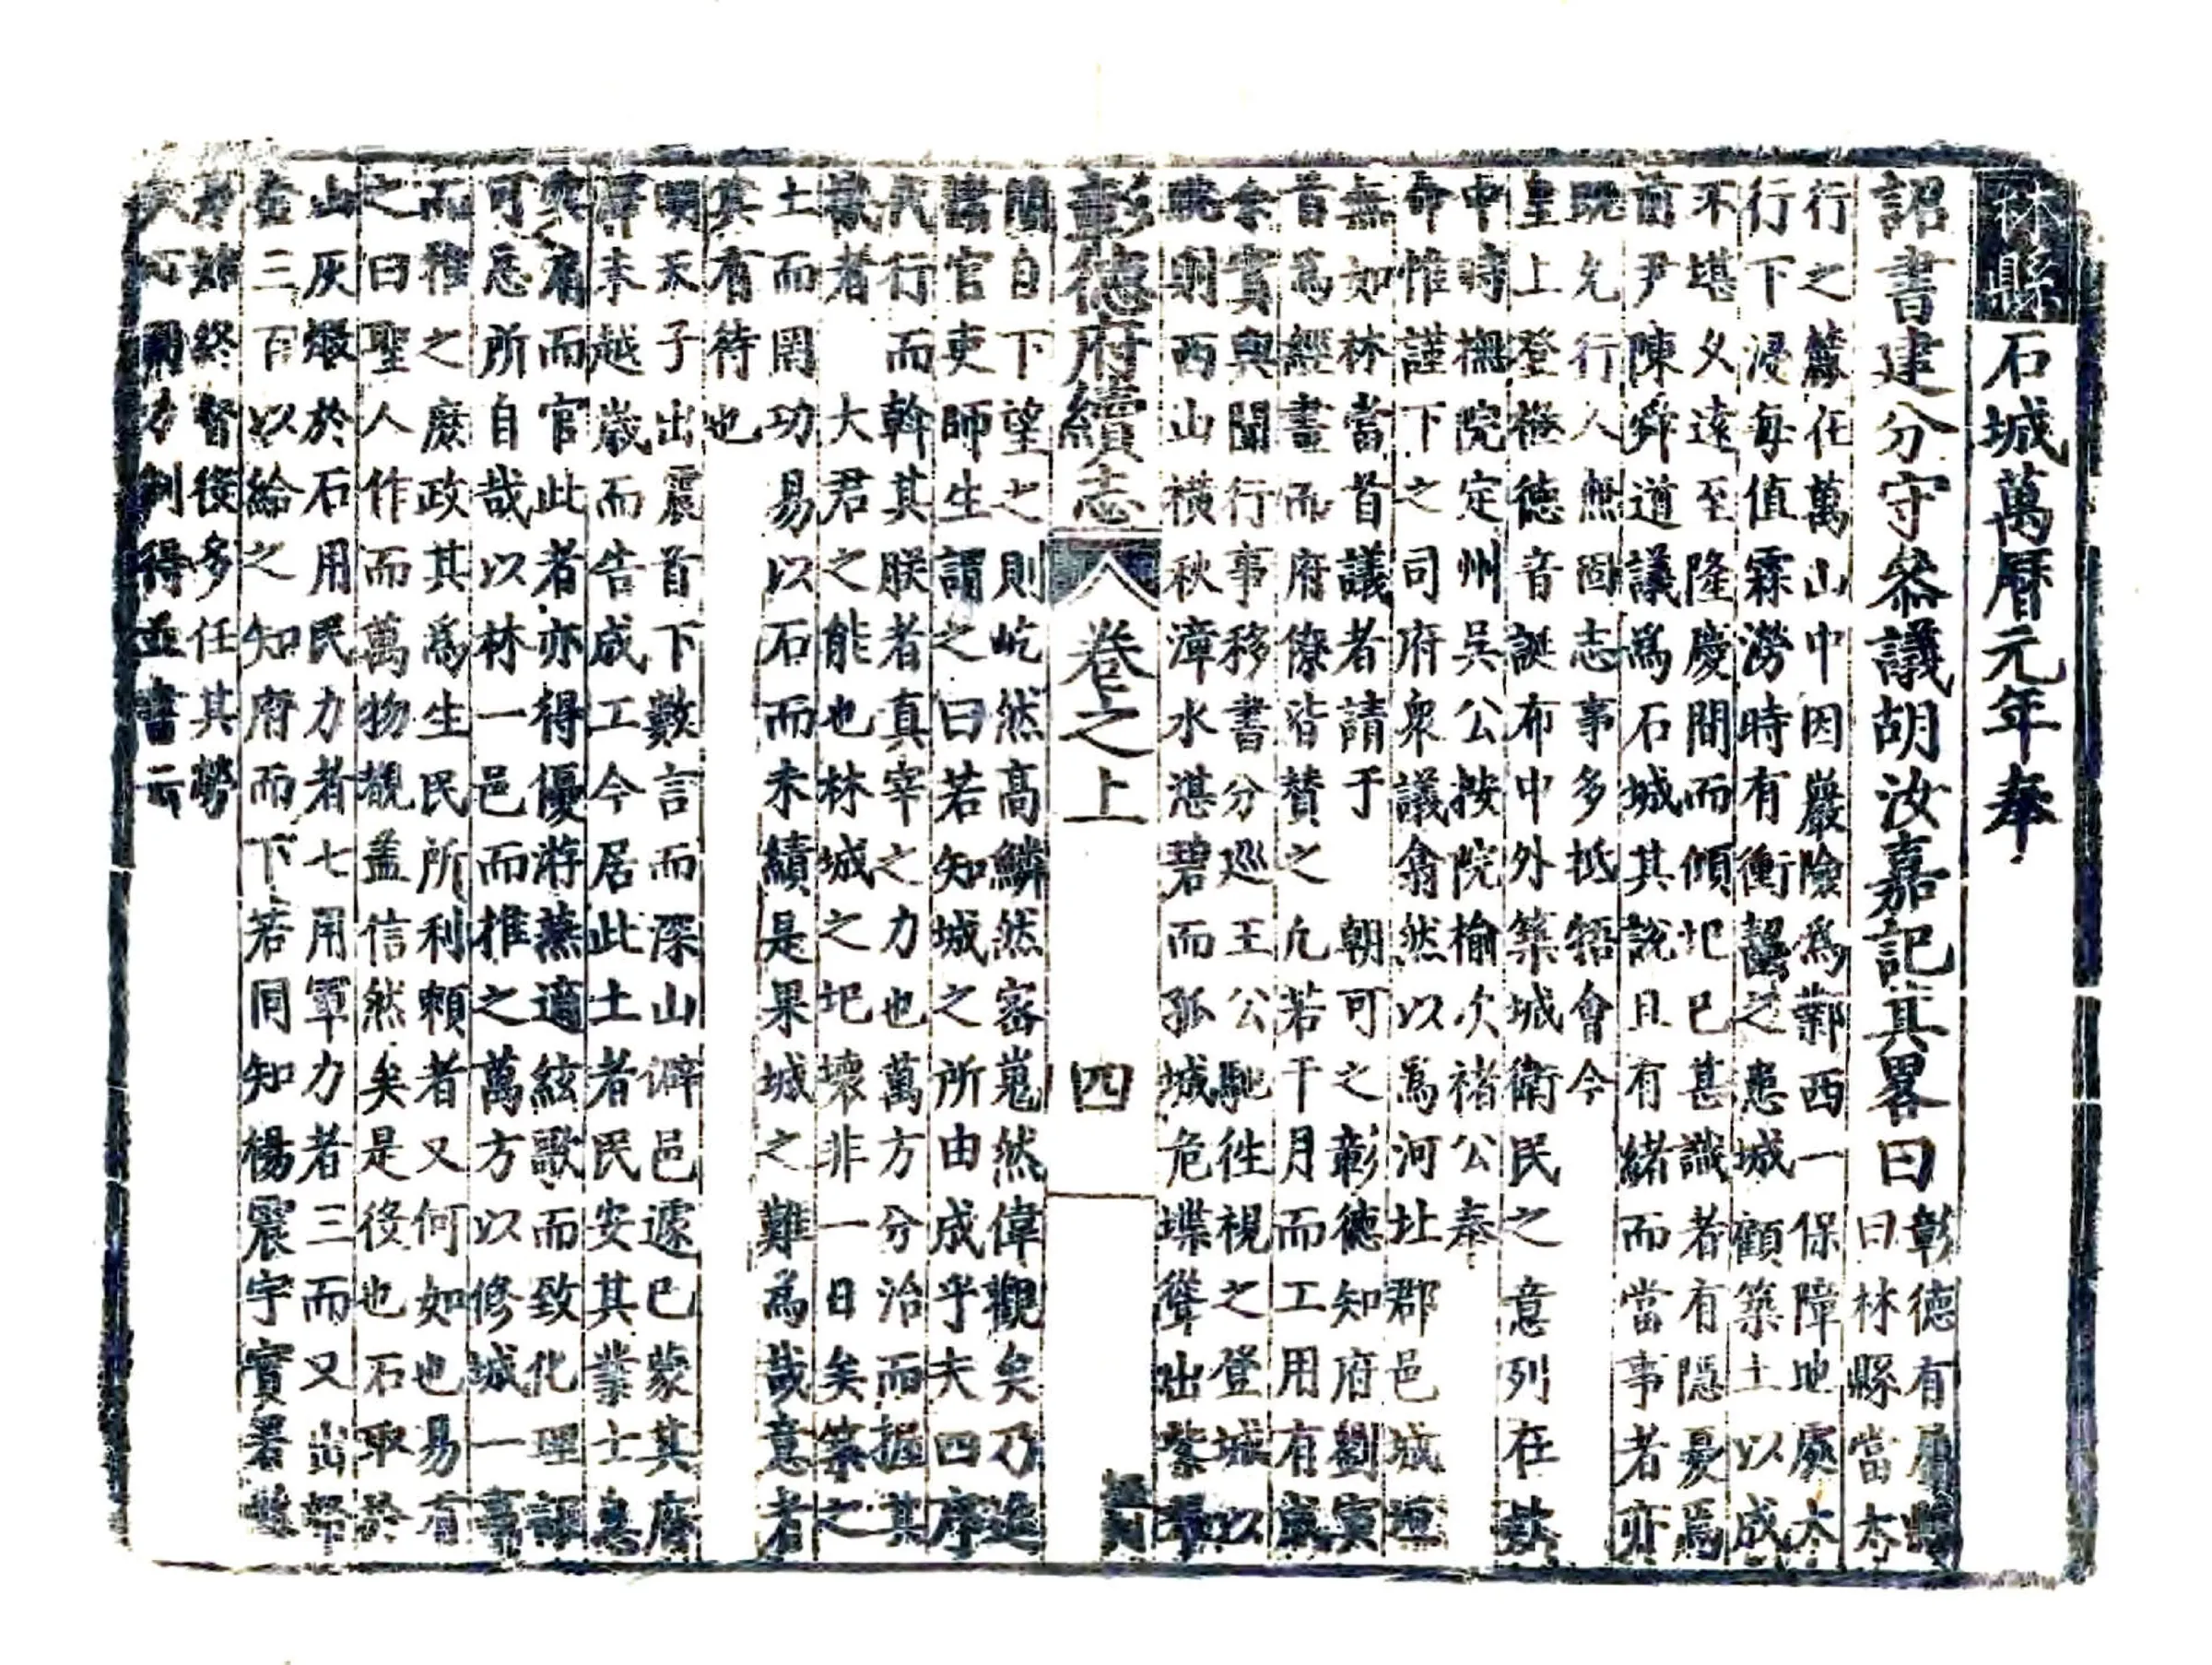 林縣石城萬曆元年奉
詔書建分守叅議胡汝嘉記其畧曰彰德有屬縣
曰林縣當太
行之麓在萬山中因巖險爲鄴西一保障地處太
行下浸每值霖澇時有衝齧之患城顧築土以成
不堪乆遠至隆慶間而傾圯已甚識者有隱憂焉
前尹陳舜道議爲石城其說且有緒而當事者亦
旣允行人無固志事多抵牾會今
皇上登極德音誕布中外築城衛民之意列在
中時撫院定州吳公按院榆次褚公奉
命惟謹下之司府衆議翕然以爲河址郡邑城垣
無如林當首議者請于 朝可之彰德知府劉寅
首爲經畫而府僚皆賛之凢若干月而工用有成
余實與聞行事移書分巡王公馳徃視之登城以
眺朝西山橫秋漳水湛碧而孤城危堞聳出
彰德府續志 卷之上 四
自下望之則屹然高鱗然密嵬然偉觀矣乃進
諸官吏師生謂之曰若知城之所由成乎夫四序
代行而斡其朕者真宰之力也萬方分治而握其
者 大君之能也林城之圯壞非一日矣築之
土而罔功易以石而未續是果城之難爲哉意者
其有待也
明天子出震首下數言而深山僻邑遂已蒙其
澤未越歲而告成工今居此土者民安其業士
而官此者亦得優游蕪適絃歌而致化理詔
可忘所自哉以林一邑而推之萬方以修城一事
而推之庶政其爲生民所利賴者又何如也易有
之曰聖人作而萬物覩盖信然矣是役也石取於
山灰煅於石用民力者七用軍力者三而又出帑
金三百以給之知府而下若同知楊震宇實署
始終督役多任其勞
得並書云